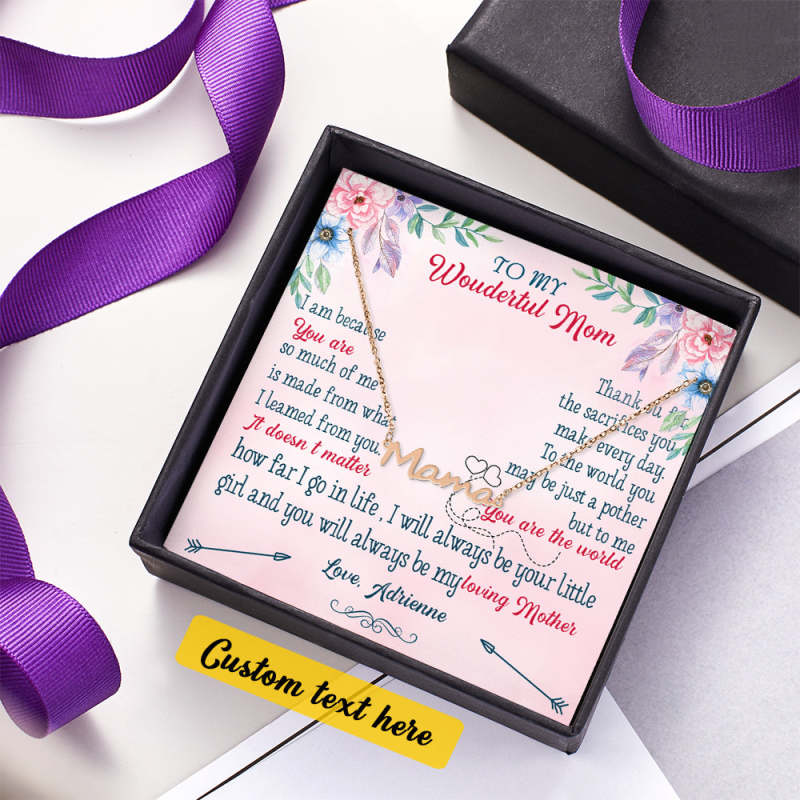 TO MY
Wouderful Mom
I am because
You are
so much of me
is made from what
I leamed from you.
It doesn t matter
Thank you for
the sacrifices you
make every day.
To the world you
may be just a pother
but to me
You are the world
how far I go in life, I will always be your little
girl and you will always be my loving Mother
Love, Adrienne
Mama
Custom text here